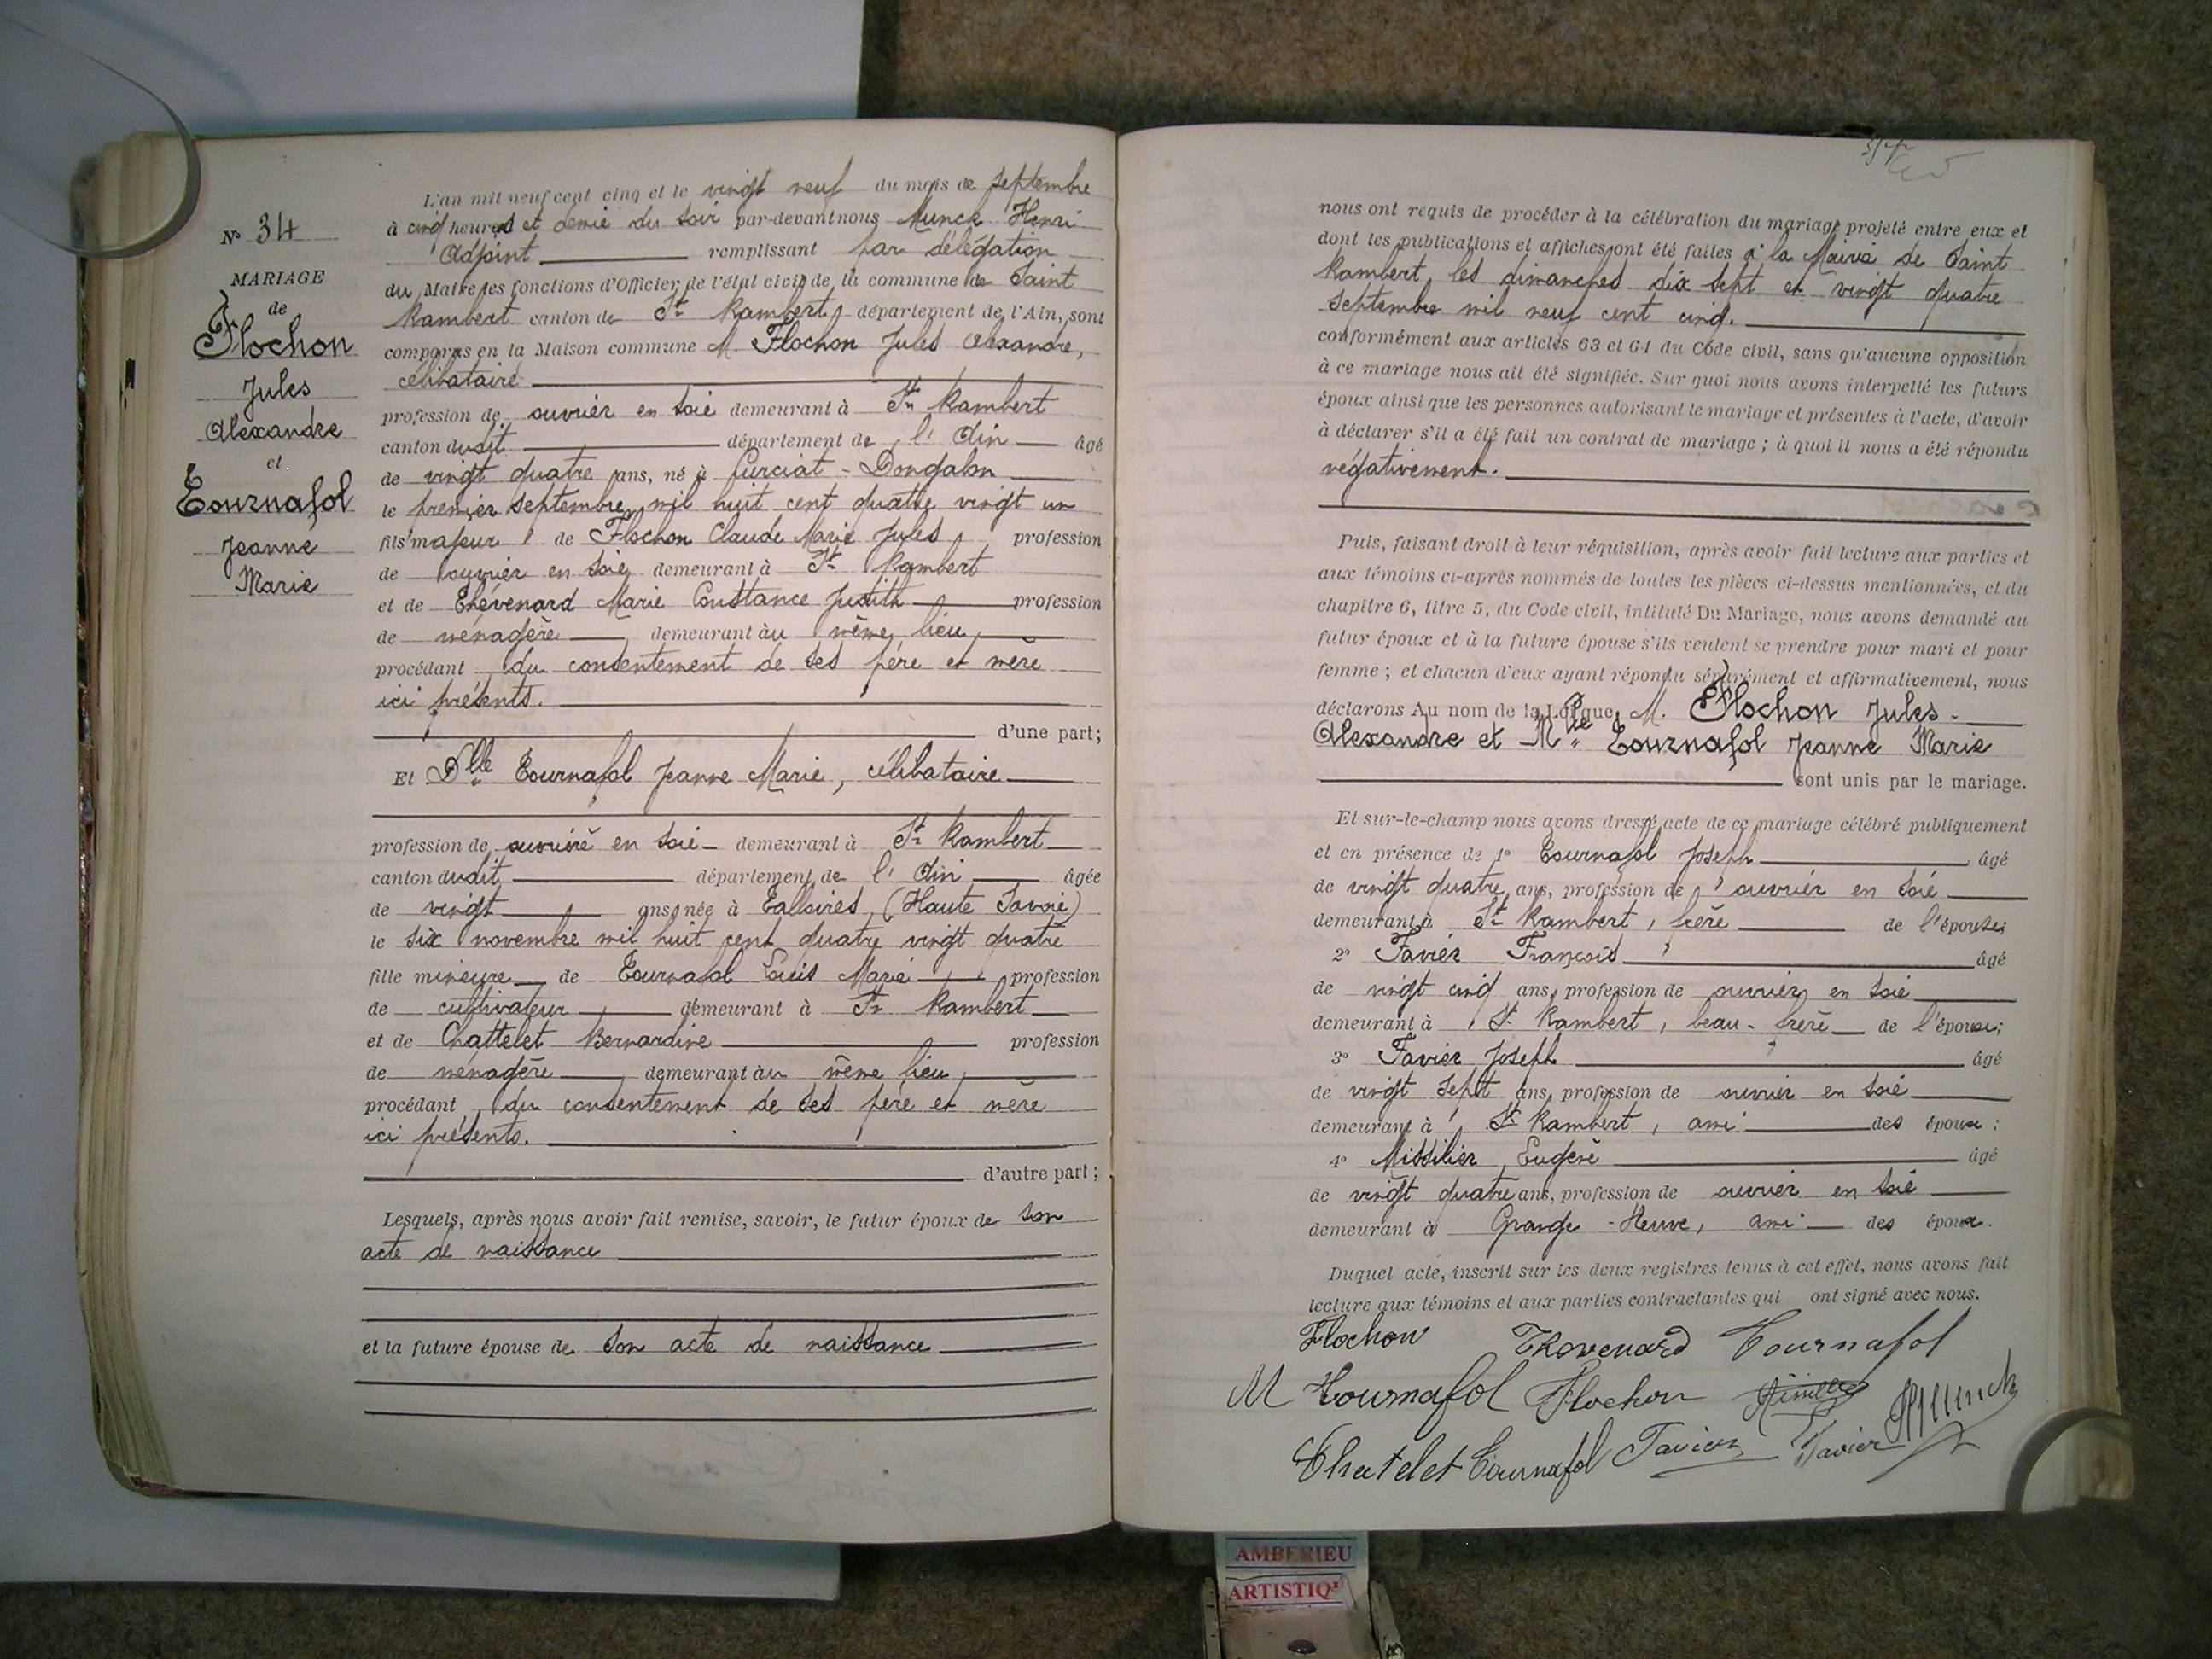 N° 34
MARIAGE
de
Flochon
Jules
Alexandre
et
Tournafol
Jeanne
Marie
L'an mil neuf cent cinq et le vingt neuf du mois de septembre
à cinq heures et demie du soir par-devant nous Munck Henri
Adjoint remplissant par délégation
du Maire les fonctions d'Officier de l'état civil de la commune de Saint
Rambert canton de St Rambert, département de l'Ain, sont
comparus en la Maison commune M. Flochon Jules Alexandre,
célibataire
profession de ouvrier en soie demeurant à St Rambert
canton dudit département de l'Ain âgé
de vingt quatre ans, né à Curciat-Dongalon
le premier septembre mil huit cent quatre vingt un
fils majeur de Flochon Claude Marie Jules, profession
de ouvrier en soie demeurant à St Rambert
et de Thévenard Marie Constance Judith profession
de ménagère, demeurant au même lieu,
procédant du consentement de ses père et mère
ici présents.
d'une part;
Et Dlle Tournafol Jeanne Marie, célibataire
profession de ouvrière en soie demeurant à St Rambert
canton dudit département de l'Ain âgée
de vingt ans, née à Talloires, (Haute Savoie)
le six novembre mil huit cent quatre vingt quatre
fille mineure de Tournafol Louis Marie profession
de cultivateur demeurant à St Rambert
et de Chattelet Bernardine profession
de ménagère demeurant au même lieu,
procédant du consentement de ses père et mère
ici présents.
d'autre part;
Lesquels, après nous avoir fait remise, savoir, le futur époux de son
acte de naissance
et la future épouse de son acte de naissance
nous ont requis de procéder à la célébration du mariage projeté entre eux et
dont les publications et affiches ont été faites à la Mairie de Saint
Rambert, les dimanches dix sept et vingt quatre
septembre mil neuf cent cinq.
conformément aux articles 63 et 64 du Code civil, sans qu'aucune opposition
à ce mariage nous ait été signifiée. Sur quoi nous avons interpellé les futurs
époux ainsi que les personnes autorisant le mariage et présentes à l'acte, d'avoir
à déclarer s'il a été fait un contrat de mariage; à quoi il nous a été répondu
négativement.
Puis, faisant droit à leur réquisition, après avoir fait lecture aux parties et
aux témoins ci-après nommés de toutes les pièces ci-dessus mentionnées, et du
chapitre 6, titre 5, du Code civil, intitulé Du Mariage, nous avons demandé au
futur époux et à la future épouse s'ils veulent se prendre pour mari et pour
femme; et chacun d'eux ayant répondu séparément et affirmativement, nous
déclarons Au nom de la Loi que M. Flochon Jules-
Alexandre et Mlle Tournafol Jeanne Marie
sont unis par le mariage.
Et sur-le-champ nous avons dressé acte de ce mariage célébré publiquement
et en présence de 1° Tournafol Joseph âgé
de vingt quatre ans, profession de ouvrier en soie
demeurant à St Rambert, frère de l'épouse;
2° Favier François âgé
de vingt cinq ans, profession de ouvrier en soie
demeurant à St Rambert, beau-frère de l'épouse;
3° Favier Joseph âgé
de vingt sept ans, profession de ouvrier en soie
demeurant à St Rambert, ami des époux;
4° Missilier Eugène âgé
de vingt quatre ans, profession de ouvrier en soie
demeurant à Grange-Neuve, ami des époux.
Duquel acte, inscrit sur les deux registres tenus à cet effet, nous avons fait
lecture aux témoins et aux parties contractantes qui ont signé avec nous.
Flochon Thevenard Tournafol
M Tournafol Flochon HMunck
Chatelet Tournafol Favier Favier
AMBERIEU
ARTISTIQ